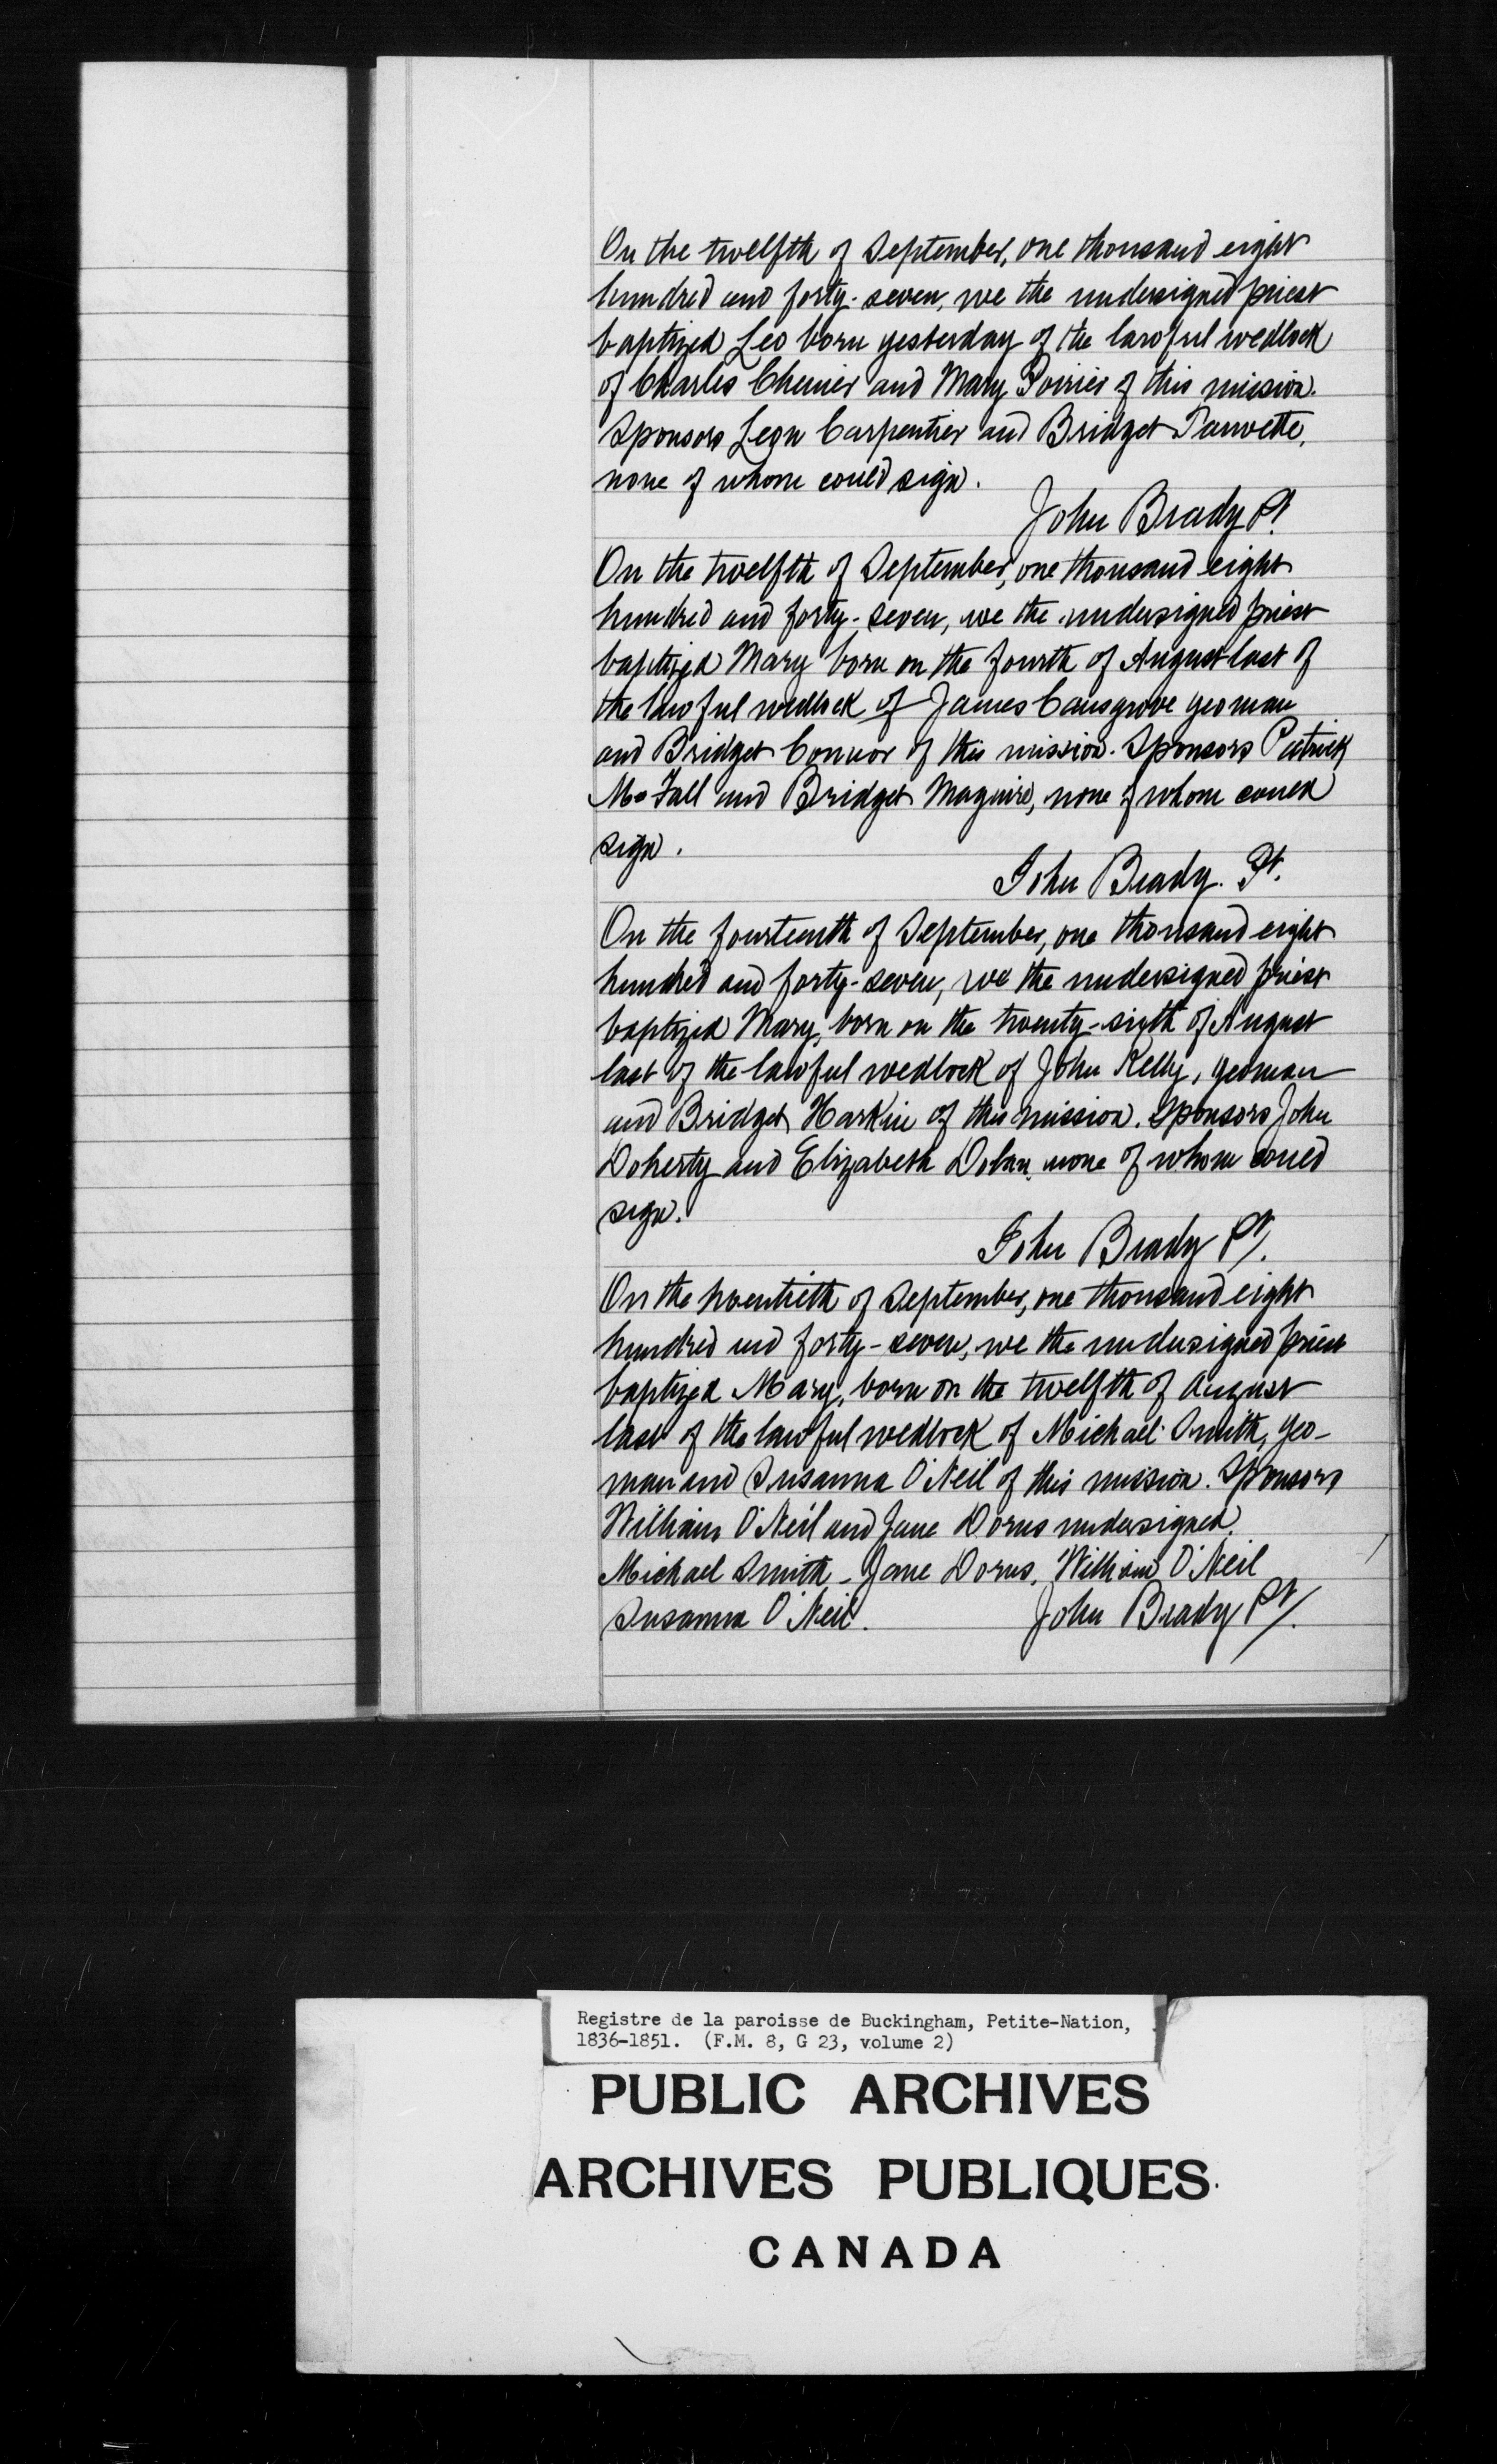 On the twelfth of September, one thousand eight
hundred and forty-seven, we the undersigned priest
baptized Leo born yesterday of the lawful wedlock
of Charles Chenier and Mary Poirier of this mission.
Sponsors Leon Carpentier and Bridget
none of whom could sign.
John Brady Pt.
On the twelfth of September, one thousand eight
hundred and forty-seven, we the undersigned priest
baptized Mary born on the fourth of August last of
the lawful wedlock of James Causgrove yeoman
and Bridget Connor of this mission. Sponsors Patrick
McFall and Bridget Maguire, none of whom could
sign.
John Brady. Pt.
On the fourteenth of September, one thousand eight
hundred and forty-seven, we the undersigned priest
baptized Mary, born on the twenty-sixth of August
last of the lawful wedlock of John Kelly, yeoman
and Bridget Harkin of this mission. Sponsors John
Doherty and Elizabeth Dolan, none of whom could
sign.
John Brady Pt.
On the twentieth of September, one thousand eight
hundred and forty-seven, we the undersigned priest
baptized Mary, born on the twelfth of August
last of the lawful wedlock of Michael Smith, yeo-
man and Susanna O'Neil of this mission. Sponsors
William O'Neil and Jane Dorus undersigned.
Michael Smith - Jane Dorus. William O'Neil
Susanna O'Neil. John Brady Pt.
Registre de la paroisse de Buckingham, Petite-Nation,
1836-1851. (F.M. 8, G 23, volume 2)
PUBLIC ARCHIVES
ARCHIVES PUBLIQUES
CANADA